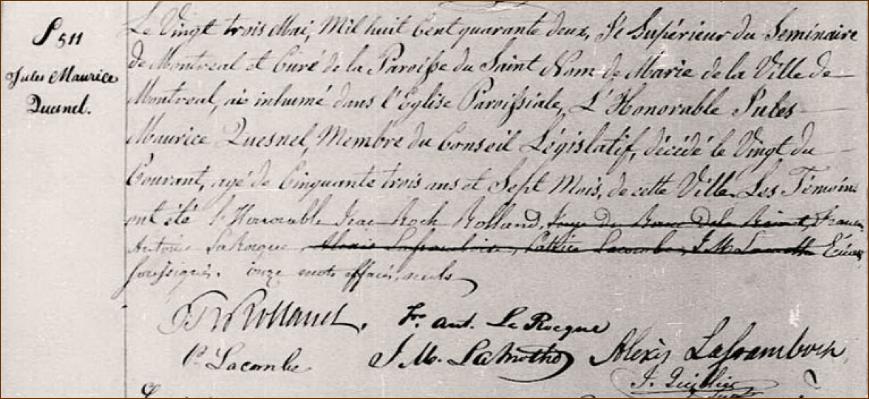 S 511
Jules Maurice
Quesnel.
Le Vingt trois Mai, Mil huit Cent quarante deux, Je Supérieur du Seminaire
de Montreal et Curé de la Paroisse du Saint Nom de Marie de la Ville de
Montreal, ai inhumé dans l'Eglise Paroissiale, L'Honorable Jules
Maurice Quesnel, Membre du Conseil Législatif, décédé le Vingt du
Courant, agé de Cinquante trois ans et Sept Mois, de cette Ville. Les Témoins
ont été l'Honorable Jean Roch Rolland, Juge du Banc de la Reine, Franc
Antoine LaRocque Alexis Laframboise, Patrice Lacombe, J. M. Lamothe Ecuiers
soussignés. onze mots effacés nuls
J R Rolland. Fr. Ant. LaRocque
P. Lacombe J. M. Lamothe Alexis Laframboise
J. Quiblier